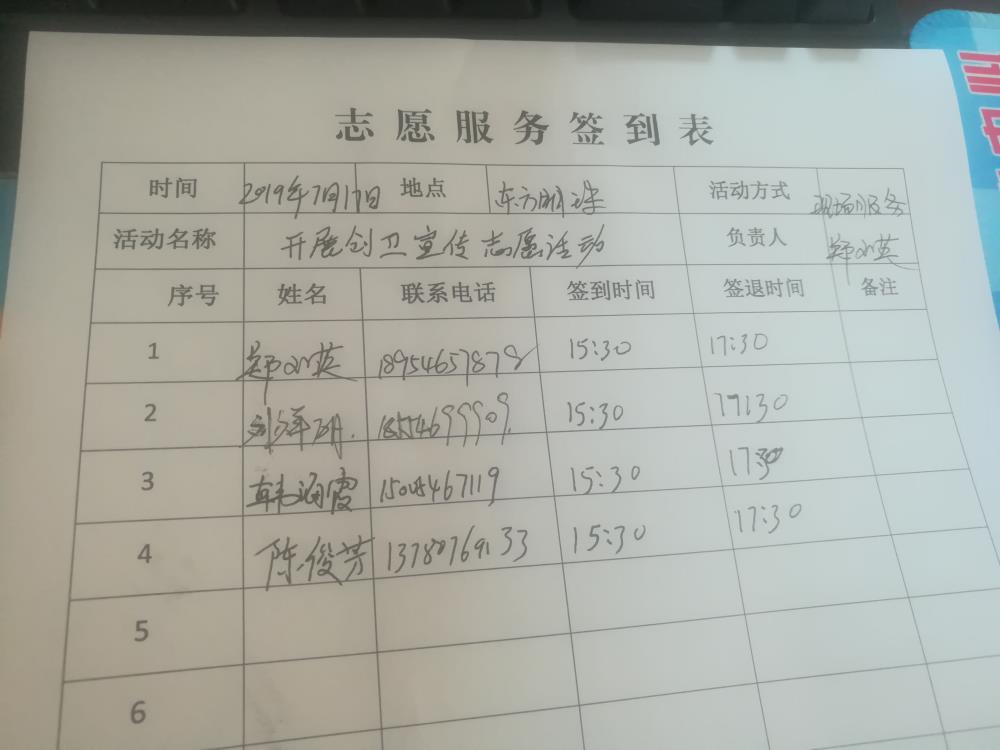 志愿服务签到表
时间 2019年7月17日 地点 东方明珠 活动方式 现场服务
活动名称 开展创卫宣传志愿活动 负责人 郑小英
序号 姓名 联系电话 签到时间 签退时间 备注
1 郑小英 18954657878 15:30 17:30
2 18554699909 15:30 17:30
3 韩海霞 15:30 17:30
4 陈俊芳 13780769133 15:30 17:30
5
6